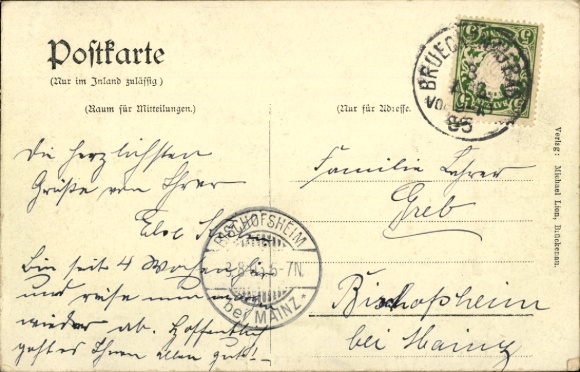 Postkarte
(Nur im Inland zulässig)
(Raum für Mitteilungen.)
Die herzlichsten
Grüße von Ihrer
Bin seit 4 Wochen hier
und reise nun
wieder ab. Hoffentlich
geht es Ihnen allen gut! –
(Nur für Adresse.)
Familie Lehrer
Greb
Bischofsheim
bei Mainz
BISCHOFSHEIM
6-7N.
bei MAINZ
BRUECKENAU
Verlag: Michael Lion, Brückenau.